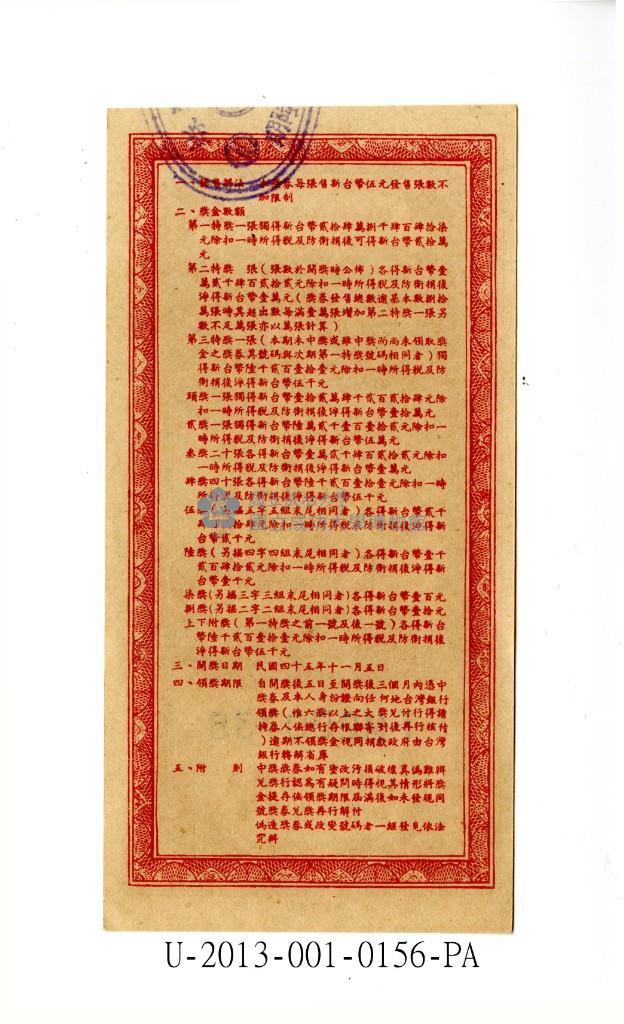 一、發售辦法 本獎券每張售新台幣伍元發售張數不
加限制
二、獎金數額
第一特獎一張獨得新台幣貳拾肆萬捌千肆百肆拾柒
元除扣一時所得稅及防衛捐後可得新台幣貳拾萬
元
第二特獎 張(張數於開獎時公佈)各得新台幣壹
萬貳千肆百貳拾貳元除扣一時所得稅及防衛捐後
淨得新台幣壹萬元(獎券發售總數逾基本數捌拾
萬張時其超出數每滿壹萬張增加第二特獎一張另
數不足萬張亦以萬張計算)
第三特獎一張(本期未中獎或雖中獎而尚未領取獎
金之獎券其號碼與次期第一特獎號碼相同者)獨
得新台幣陸千貳百壹拾壹元除扣一時所得稅及防
衛捐後淨得新台幣伍千元
頭獎一張獨得新台幣壹拾貳萬肆千貳百貳拾肆元除
扣一時所得稅及防衛捐後淨得新台幣壹拾萬元
貳獎一張獨得新台幣陸萬貳千壹百壹拾貳元除扣一
時所得稅及防衛捐後淨得新台幣伍萬元
叁獎二十張各得新台幣壹萬貳千肆百貳拾貳元除扣
一時所得稅及防衛捐後淨得新台幣壹萬元
肆獎四十張各得新台幣陸千貳百壹拾壹元除扣一時
所得稅及防衛捐後淨得新台幣伍千元
伍獎(另搖五字五組末尾相同者)各得新台幣貳千
肆百捌拾肆元除扣一時所得稅及防衛捐後淨得新
台幣貳千元
陸獎(另搖四字四組末尾相同者)各得新台幣壹千
貳百肆拾貳元除扣一時所得稅及防衛捐後淨得新
台幣壹千元
柒獎(另搖三字三組末尾相同者)各得新台幣壹百元
捌獎(另搖二字二組末尾相同者)各得新台幣壹拾元
上下附獎(第一特獎之前一號及後一號)各得新台
幣陸千貳百壹拾壹元除扣一時所得稅及防衛捐後
淨得新台幣伍千元
三、開獎日期 民國四十五年十一月五日
四、領獎期限 自開獎後五日至開獎後三個月內憑中
獎券及本人身份證向任何地台灣銀行
領獎(惟六獎以上之大獎兌付行得請
持券人俟總行存根聯寄到後再行核付
)逾期不領獎金視同捐獻政府由台灣
銀行轉解省庫
五、附 則 中獎獎券如有塗改污損破壞真偽難辨
兌獎行認為有疑問時得視其情形將獎
金提存俟領獎期限屆滿後如未發現同
號獎券兌獎再行解付
偽造獎券或改變號碼者一經發見依法
究辦
U-2013-001-0156-PA